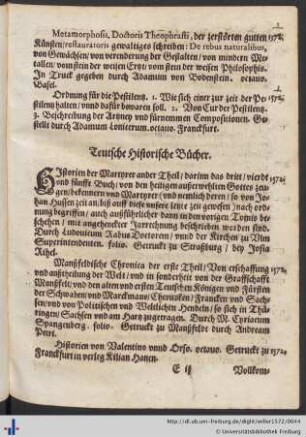 Metamorphosis, Doctoris Theophrasti, der zerstörten gutten 1572.
Künsten/restauratoris gewaltiges schreiben: De rebus naturalibus,
von Gewächsen/von verenderung der Gestalten/von mindern Me-
tallen/vom stein der weisen
In Truck gegeben durch Adamum von Bodenstein. octauo.
Basel.
Ordnung für die Pestilentz. 1. Wie sich einer zur zeit der Pe- 1572.
stilentz halten/vnnd dafür bewaren soll. 2. Von Cur der Pestilentz.
3. Beschreibung der Artzney vnd fürnemmen Compositionen. Ge-
stellt durch Adamum Lonicerum. octauo. Franckfurt.
Teutsche Historische Bücher.
HIstorien der Martyrer ander Theil/darinn das dritt/vierdt 1572.
vnd fünffte Buch/von den heiligen außerwehlten Gottes zeu-
gen/bekennern vnd Martyrer (vnd nemlich deren/so von Jo-
han Hussen zeit an/biß auff diese vnsere letzte zeit getödtet) nach ord-
nung begriffen/auch außführlicher dann in den vorigen Tomis be-
schehen/mit angehenckter
Durch Ludouicum Rabus Doctorem/vnnd der Kirchen zu Vlm
Superintendenten. folio. Getruckt zu Straßburg/bey Josia
Rihel.
Manßfeldische Chronica der erste Theil/Von erschaffung 1572.
vnd außtheilung der Welt/vnd in sonderheit von der Graffschafft
Manßfelt/vnd den alten vnd ersten Teutschen Königen vnd Fürsten
der Schwaben vnd Marckmannen/Cherusken/Francken vnd Sach-
sen/vnd von Politischen vnd Weltlichen Hendeln/so sich in Thü-
ringen/Sachsen vnd am Hartz zugetragen. Durch M. Cyriacum
Spangenberg. folio. Getruckt zu Manßfeldt durch Andream
Petri.
Historien von Valentino vnnd Orso. octauo. Getruckt zu 1572.
Franckfurt in verleg Kilian Hanen.
E ij Vollkom-
http://dl.ub.uni-freiburg.de/diglit/willer1572/0044
© Universitätsbibliothek Freiburg